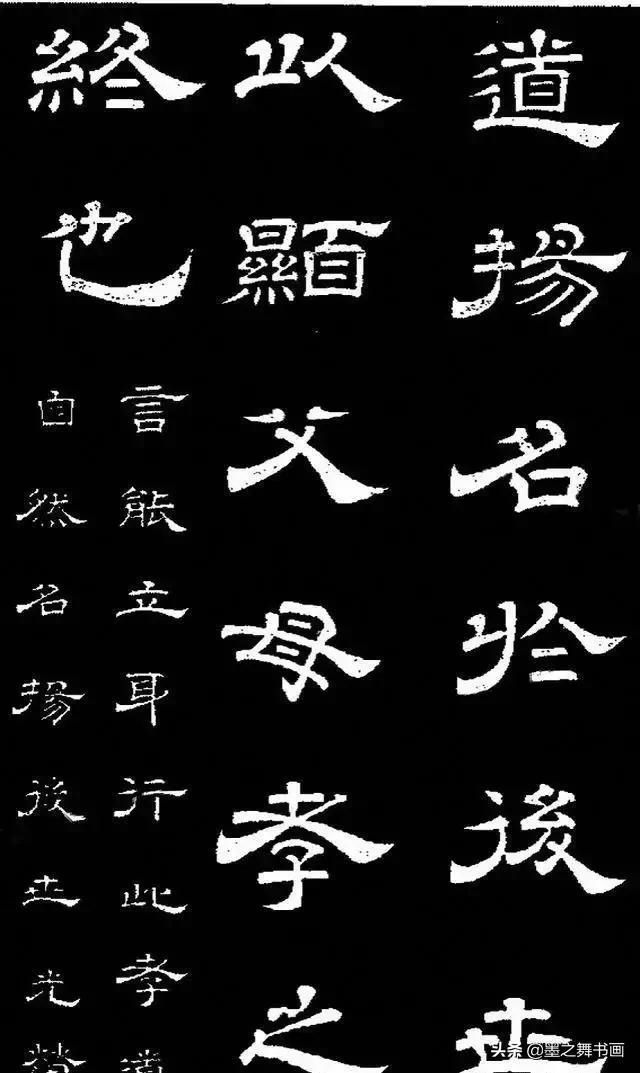 道揚名於後世
以顯父母孝之
終也
言能立身行此孝道
自然名揚後世光榮
头条 @墨之舞书画